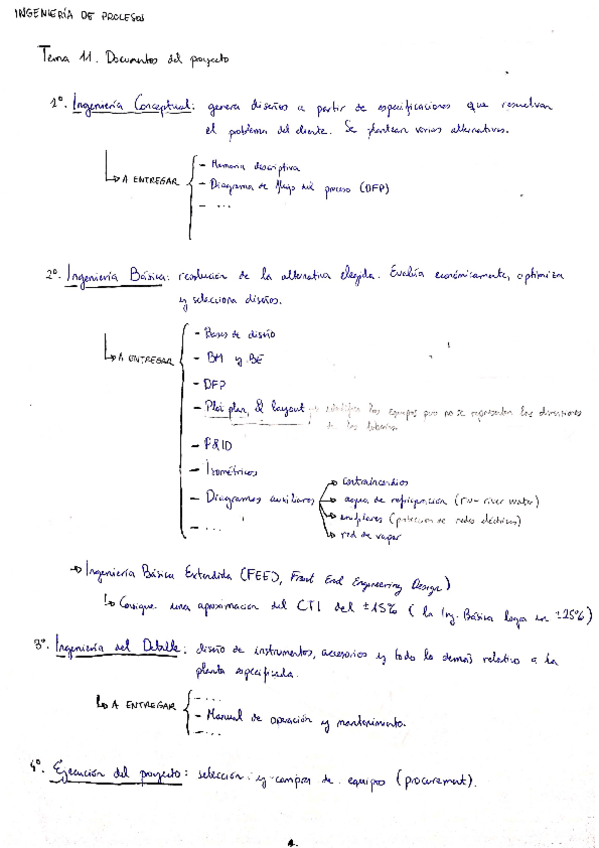 INGENIERÍA DE PROCESOS
Tema 11. Documentos del proyecto
1º. Ingeniería Conceptual: genera diseños a partir de especificaciones que resuelvan
el problema del cliente. Se plantean varias alternativas.
↳ A ENTREGAR
- Memoria descriptiva
- Diagrama de flujo del proceso (DFP)
- ...
2º. Ingeniería Básica: resolución de la alternativa elegida. Evalúa económicamente, optimiza
y selecciona diseños.
↳ A ENTREGAR
- Bases de diseño
- BM y BE
- DFP
- Plot plan, layout los equipos pero no se representan las dimensiones
de las tuberías
- P&ID
- Isométricos
- Diagramas auxiliares
→ contraincendios
→ agua de refrigeración (RW- river water)
→ (protección de redes eléctricas)
↳ red de vapor
- ...
→ Ingeniería Básica Extendida (FEED, Front End Engineering Design)
↳ Consigue una aproximación del CTI del ±15% (la Ing. Básica logra un ±25%)
3º. Ingeniería del Detalle: diseño de instrumentos, accesorios y todo lo demás relativo a la
planta especificada.
↳ A ENTREGAR
- ...
- Manual de operación y mantenimiento.
- ...
4º. Ejecución del proyecto: selección y compra de equipos (procurement).
1.